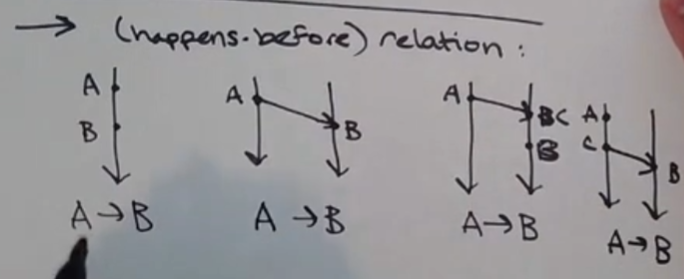 → (happens-before) relation:
A
B
A→B
A
B
A→B
A
C
B
A→B
A
C
B
A→B